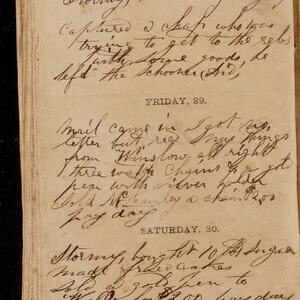 captured a chap who was
trying to get to the rebs
with some goods, he
left the schooner
FRIDAY, 29.
Mail came in I got no
letter but recd my things
from Winslow, all right
three watch chains gold
pen with silver holder
Sold a chain $2.00
pay day
SATURDAY, 30.
Stormy, bought 10 lb sugar
made
Sold a gold pen to
pay day